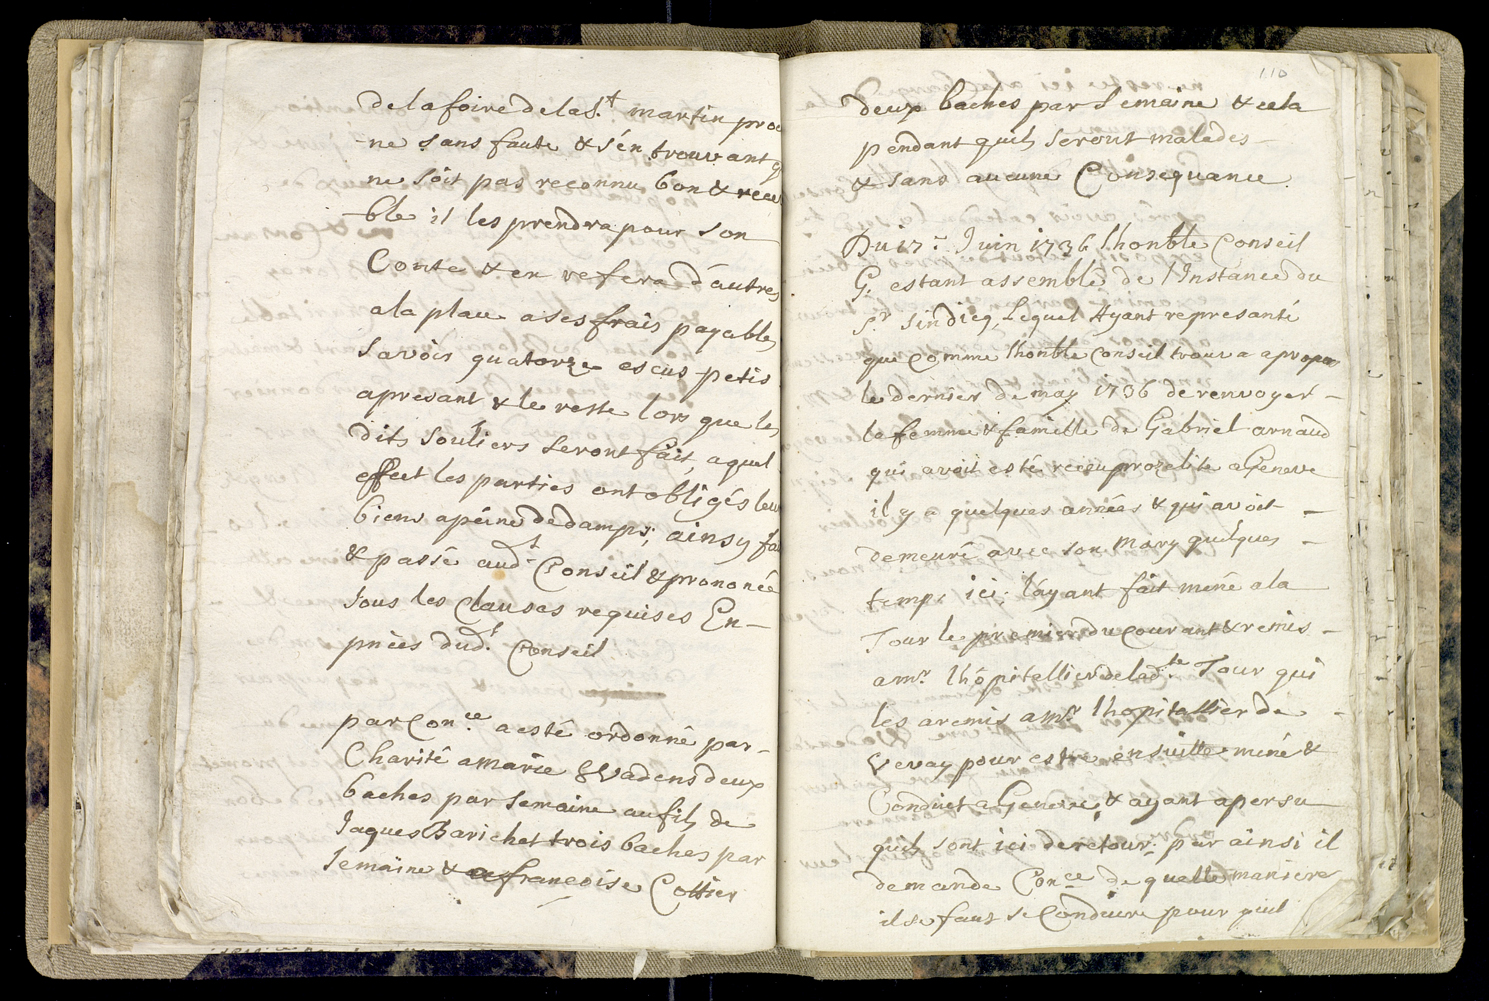 de la foire de la S.t martin proc
ne sans faute & s'en trouvant q
ne soit pas reconnu bon & rece
ble il les prendra pour son
Conte & en refera d'autres
a la place a ses frais payables
savoir quatorze escus petis
apresant & le reste lors que les
dits souliers seront fait, a quel
effect les parties ont obligés leur
biens a peine de damps; ainsy fai
& passé aud.t Conseil & prononcé
sous les Clauses requises En
pnces dud.t Conseil
par Con.ce a esté ordonné par
Charité a marie deux
baches par semaine au fils de
Jaques Barichet trois baches par
semaine & a francoise Cottier
110
deux baches par semaine & cela
pendant quils seront malades
& sans aucune Consequance.
Du 17.e Juin 1736 l'honble Conseil
G. estant assemblé de l'Instance du
S.r sindicq, Lequel Ayant represanté
que comme l'honble conseil trouva a propos
le dernier de may 1736 de renvoyer
la femme & famille de Gabriel arnaud
qui avoit esté receu prozelite a Geneve
il y a quelques années & qui avoit
demeuré avec son mary quelques
temps ici. l'ayant fait mené a la
Tour le premier du courant & remis
a mr. l'hôpitellier de lad.te Tour qui
les a remis a mr. l'hopitallier de
Vevay pour estre ensuitte mené &
Conduict a Geneve, & ayant apersu
quils sont ici de retour. par ainsi il
demande Con.ce de quelle maniere
il se faut se Conduire pour quil